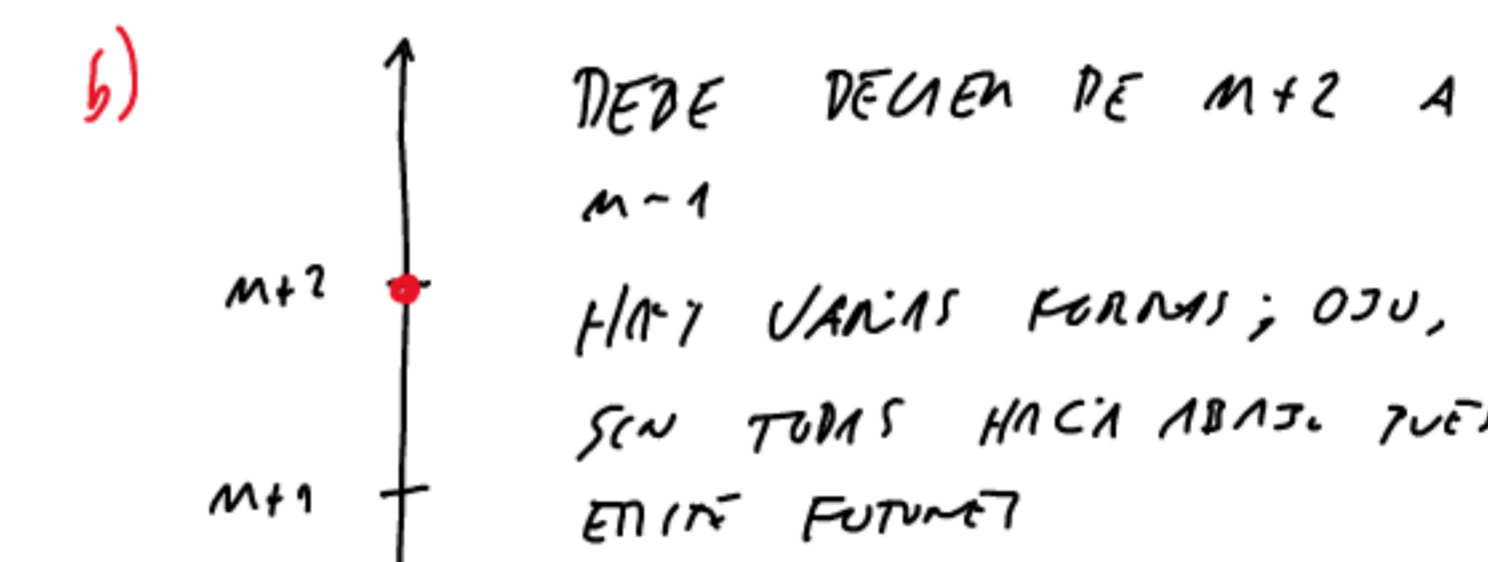 b)
DEBE DECAER DE n+2 A
n-1
n+2
HAY VARIAS FORMAS; OJO,
SON TODAS HACIA ABAJO PUES
n+1
EMITE FOTONES